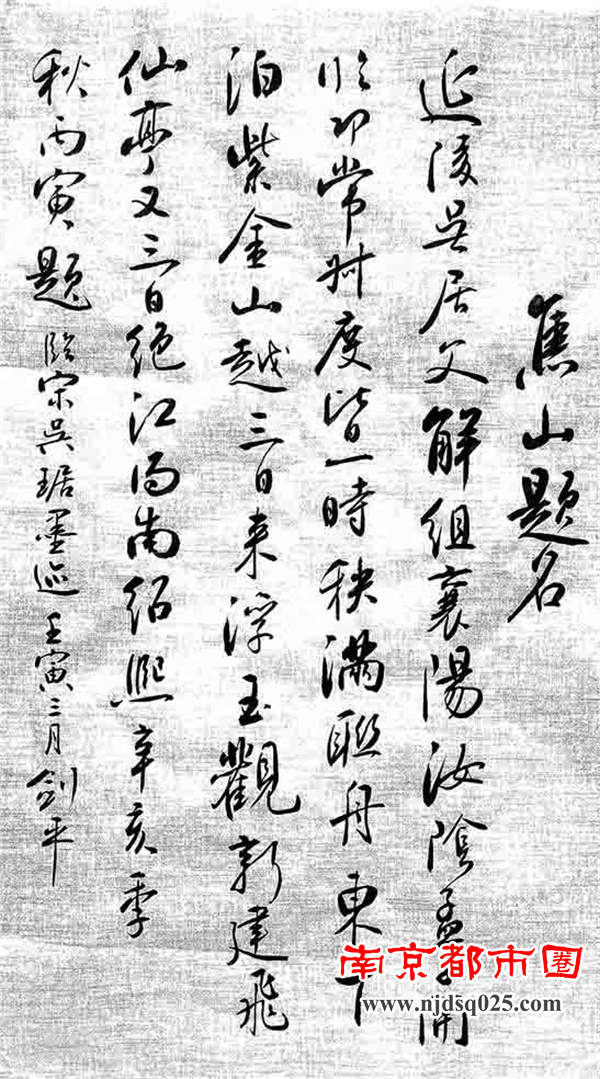 焦山題名
延陵吴居父解组襄陽汝陰孟子開
临邛常叔度皆一時秩滿聯舟東下
泊紫金山越三日来浮玉觀新建飛
仙亭又三日绝江而南绍熙辛亥季
秋丙寅題 临宋吴琚墨迹 壬寅三月 剑平
南京都市圈
www.njdsq025.com